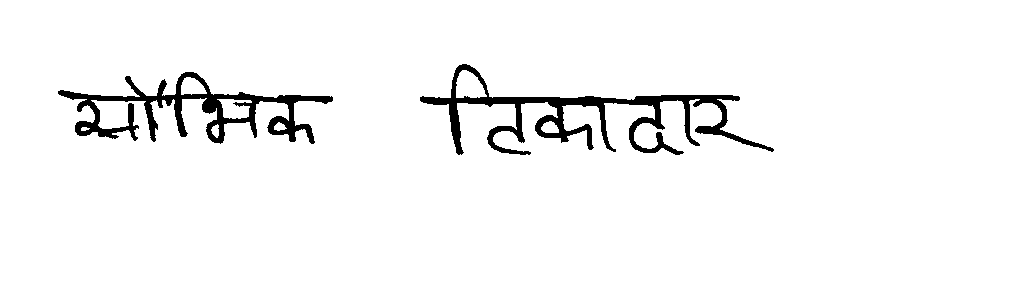 सौभिक टिकादार